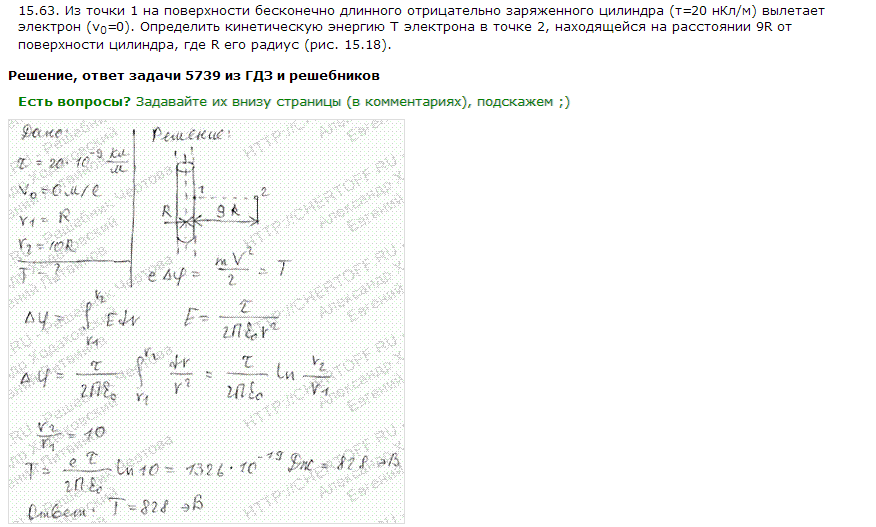 15.63. Из точки 1 на поверхности бесконечно длинного отрицательно заряженного цилиндра (τ=20 нКл/м) вылетает
электрон (v0=0). Определить кинетическую энергию Т электрона в точке 2, находящейся на расстоянии 9R от
поверхности цилиндра, где R его радиус (рис. 15.18).
Решение, ответ задачи 5739 из ГДЗ и решебников
Есть вопросы? Задавайте их внизу страницы (в комментариях), подскажем ;)
Дано:
τ = 20·10^-9 Кл/м
V0 = 0 м/с
r1 = R
r2 = 10R
T = ?
Решение:
1 2
R 9R
eΔφ = mV^2/2 = T
Δφ = ∫r1^r2 Edr E = τ/2Πε0r^2
Δφ = τ/2Πε0 ∫r1^r2 dr/r^2 = τ/2Πε0 ln r2/r1
r2/r1 = 10
T = eτ/2Πε0 ln10 = 1326·10^-19 Дж = 828 эВ
Ответ: T = 828 эВ
HTTP://CHERTOFF.RU